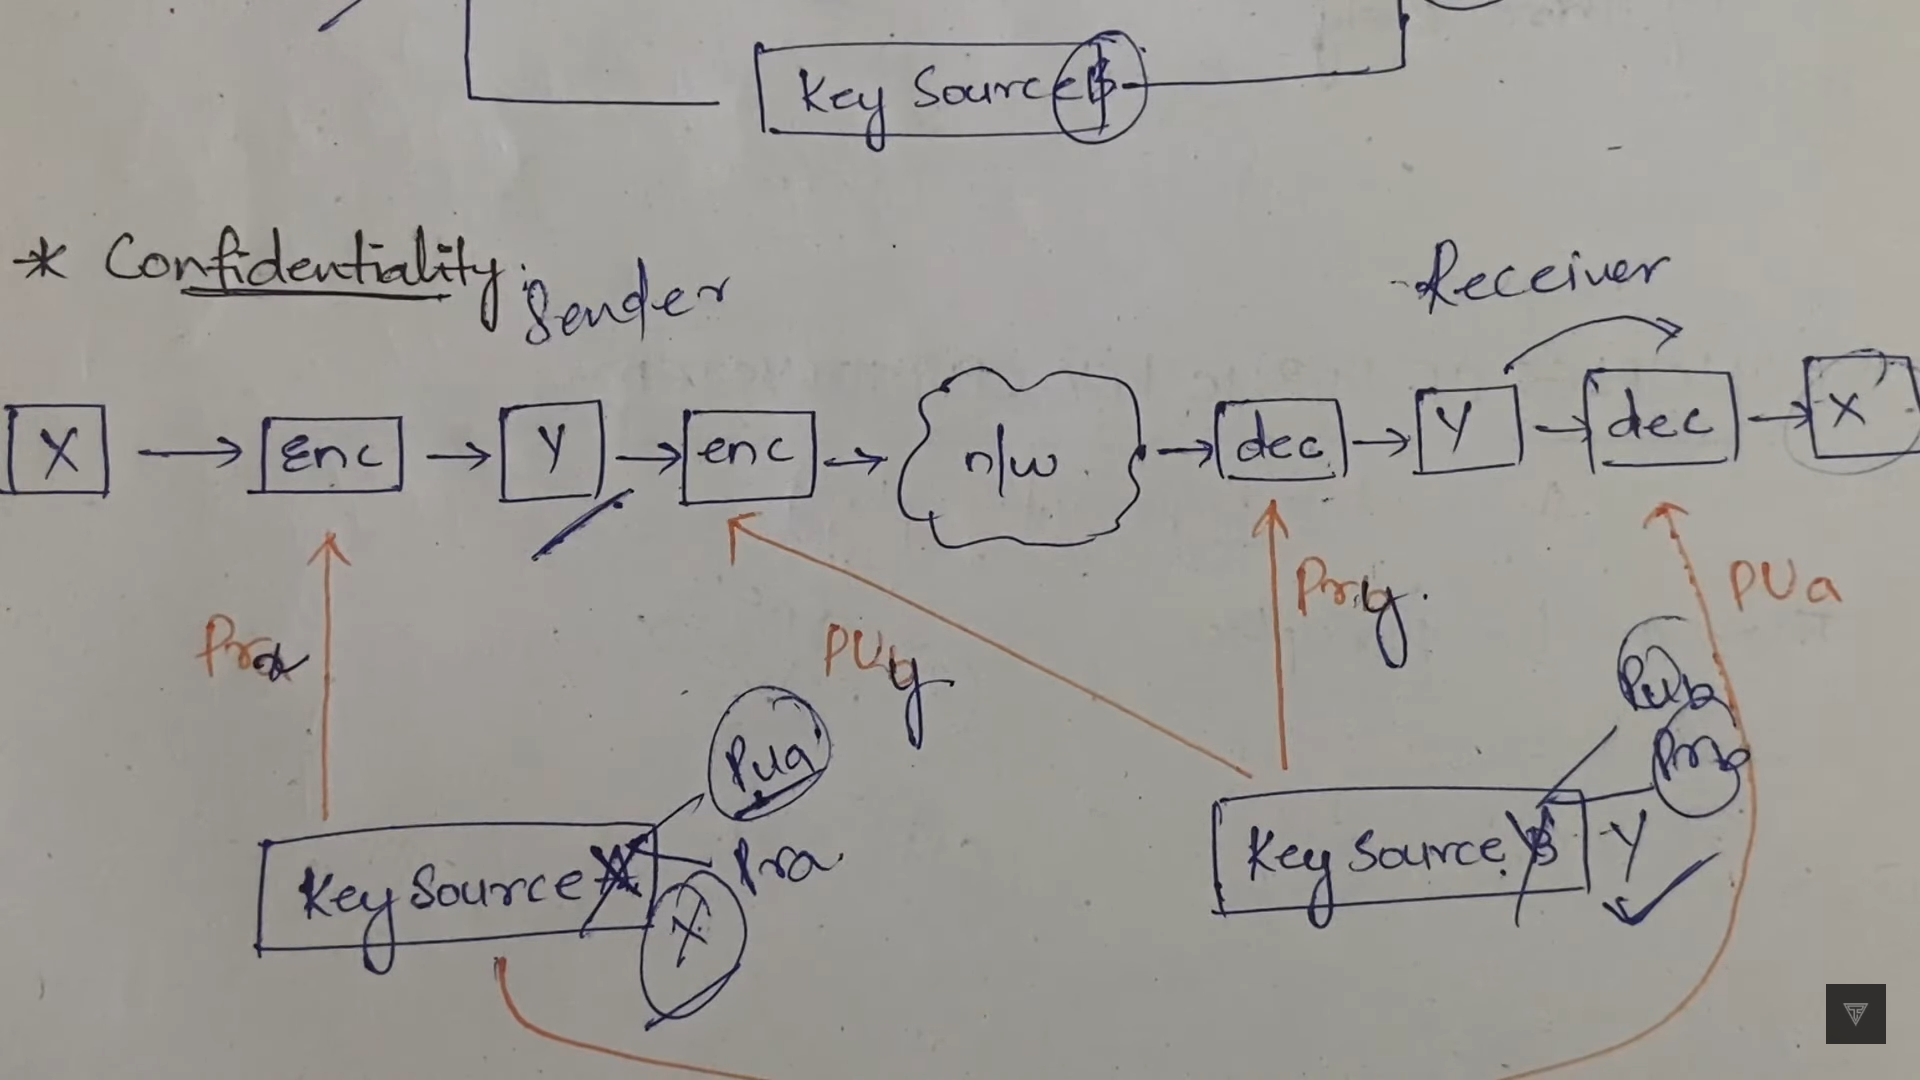 Key Source
* Confidentiality.
Sender
Receiver
X → Enc → Y → enc → n/w → dec → Y → dec → X
Pra
PUy
Pry.
PUa
Pub
Prb
PUa
Pra
Key Source
X
Key Source
Y